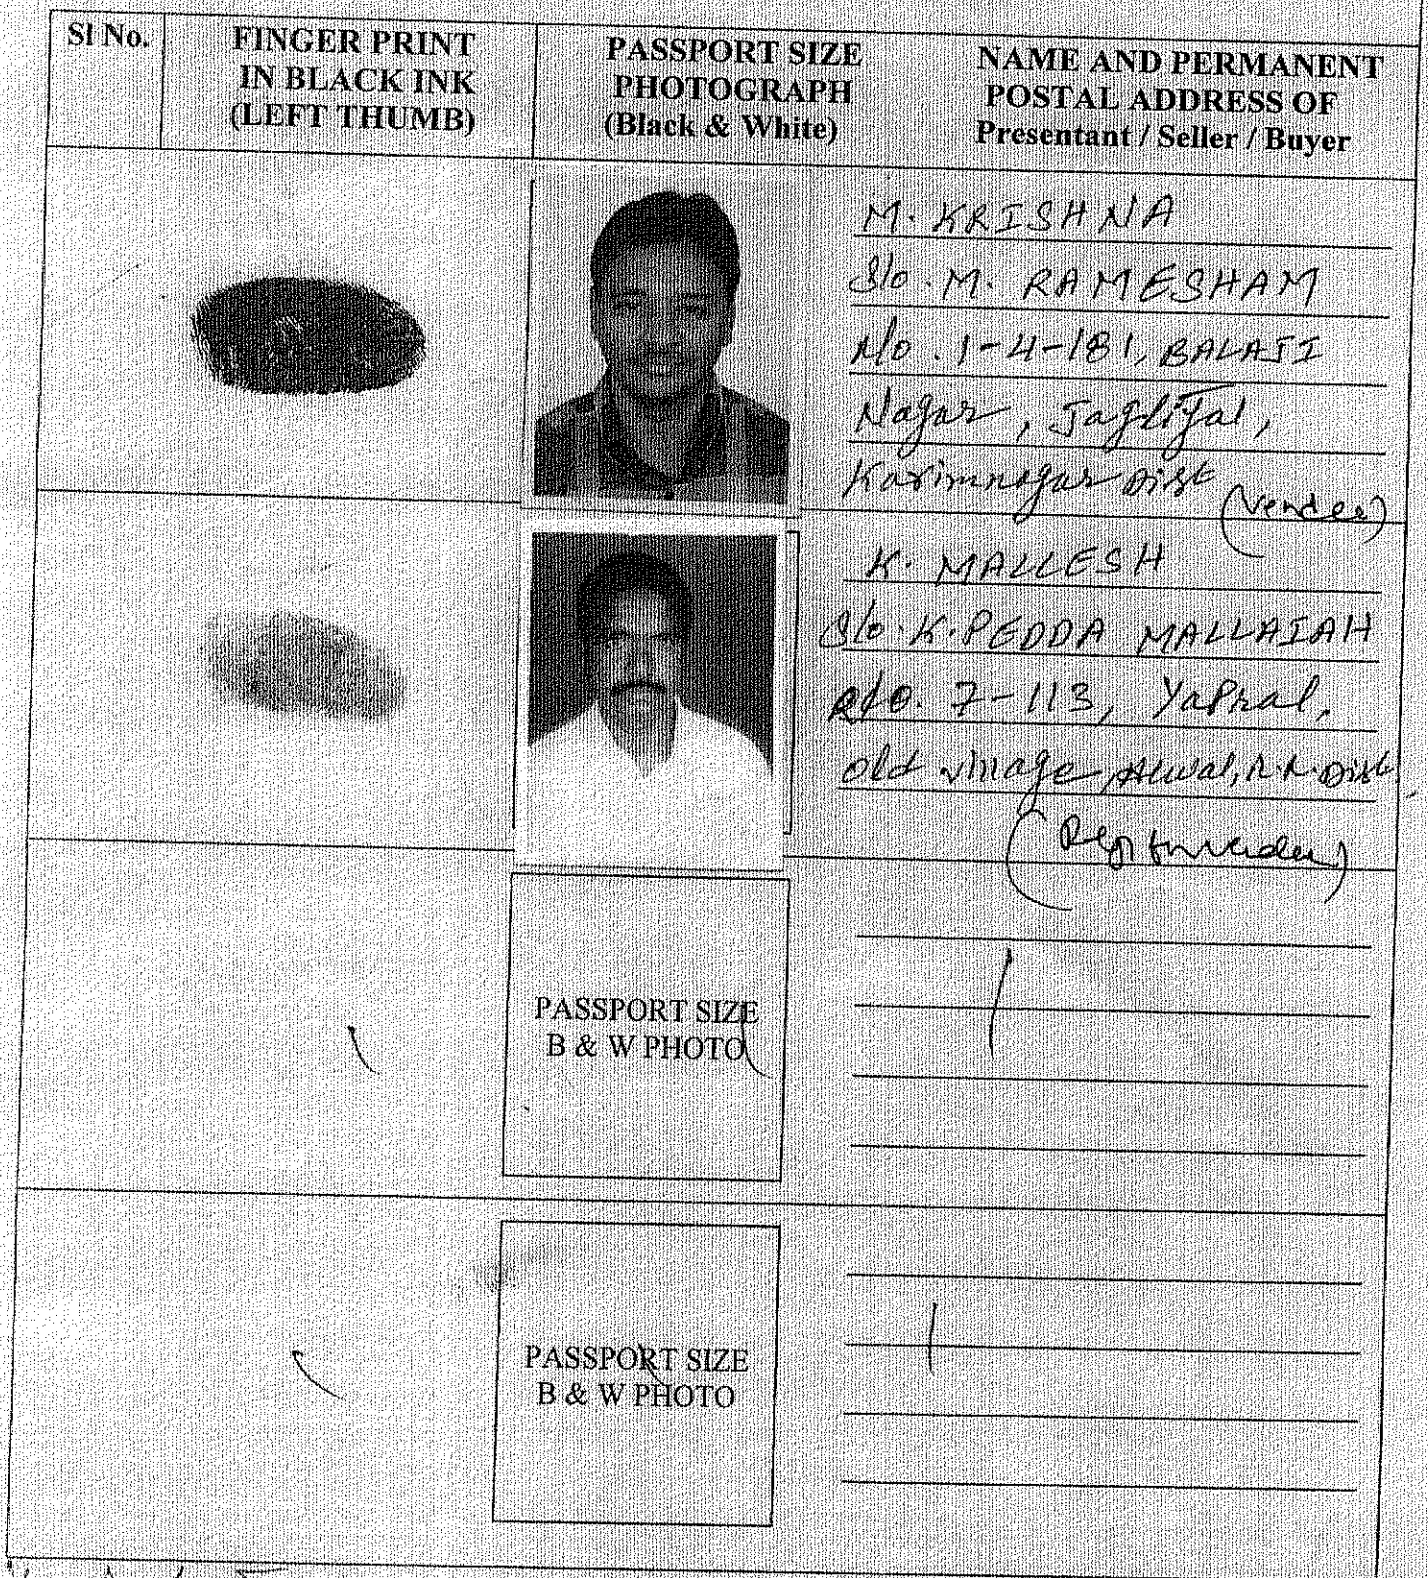 Sl No.
FINGER PRINT
IN BLACK INK
(LEFT THUMB)
PASSPORT SIZE
PHOTOGRAPH
(Black & White)
NAME AND PERMANENT
POSTAL ADDRESS OF
Presentant / Seller / Buyer
M. KRISHNA
S/o. M. RAMESHAM
R/o. 1-4-181, BALAJI
Nagar, Jagtiyal,
Karimnagar Dist
(Vendee)
K. MALLESH
S/o. K. PEDDA MALLAIAH
R/o. 7-113, Yapral,
old village, Alwal, R.R. Dist
PASSPORT SIZE
B & W PHOTO
PASSPORT SIZE
B & W PHOTO